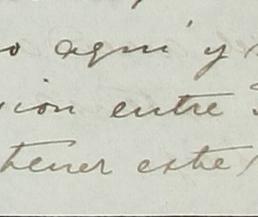 o aquí y
sion entre
tener este